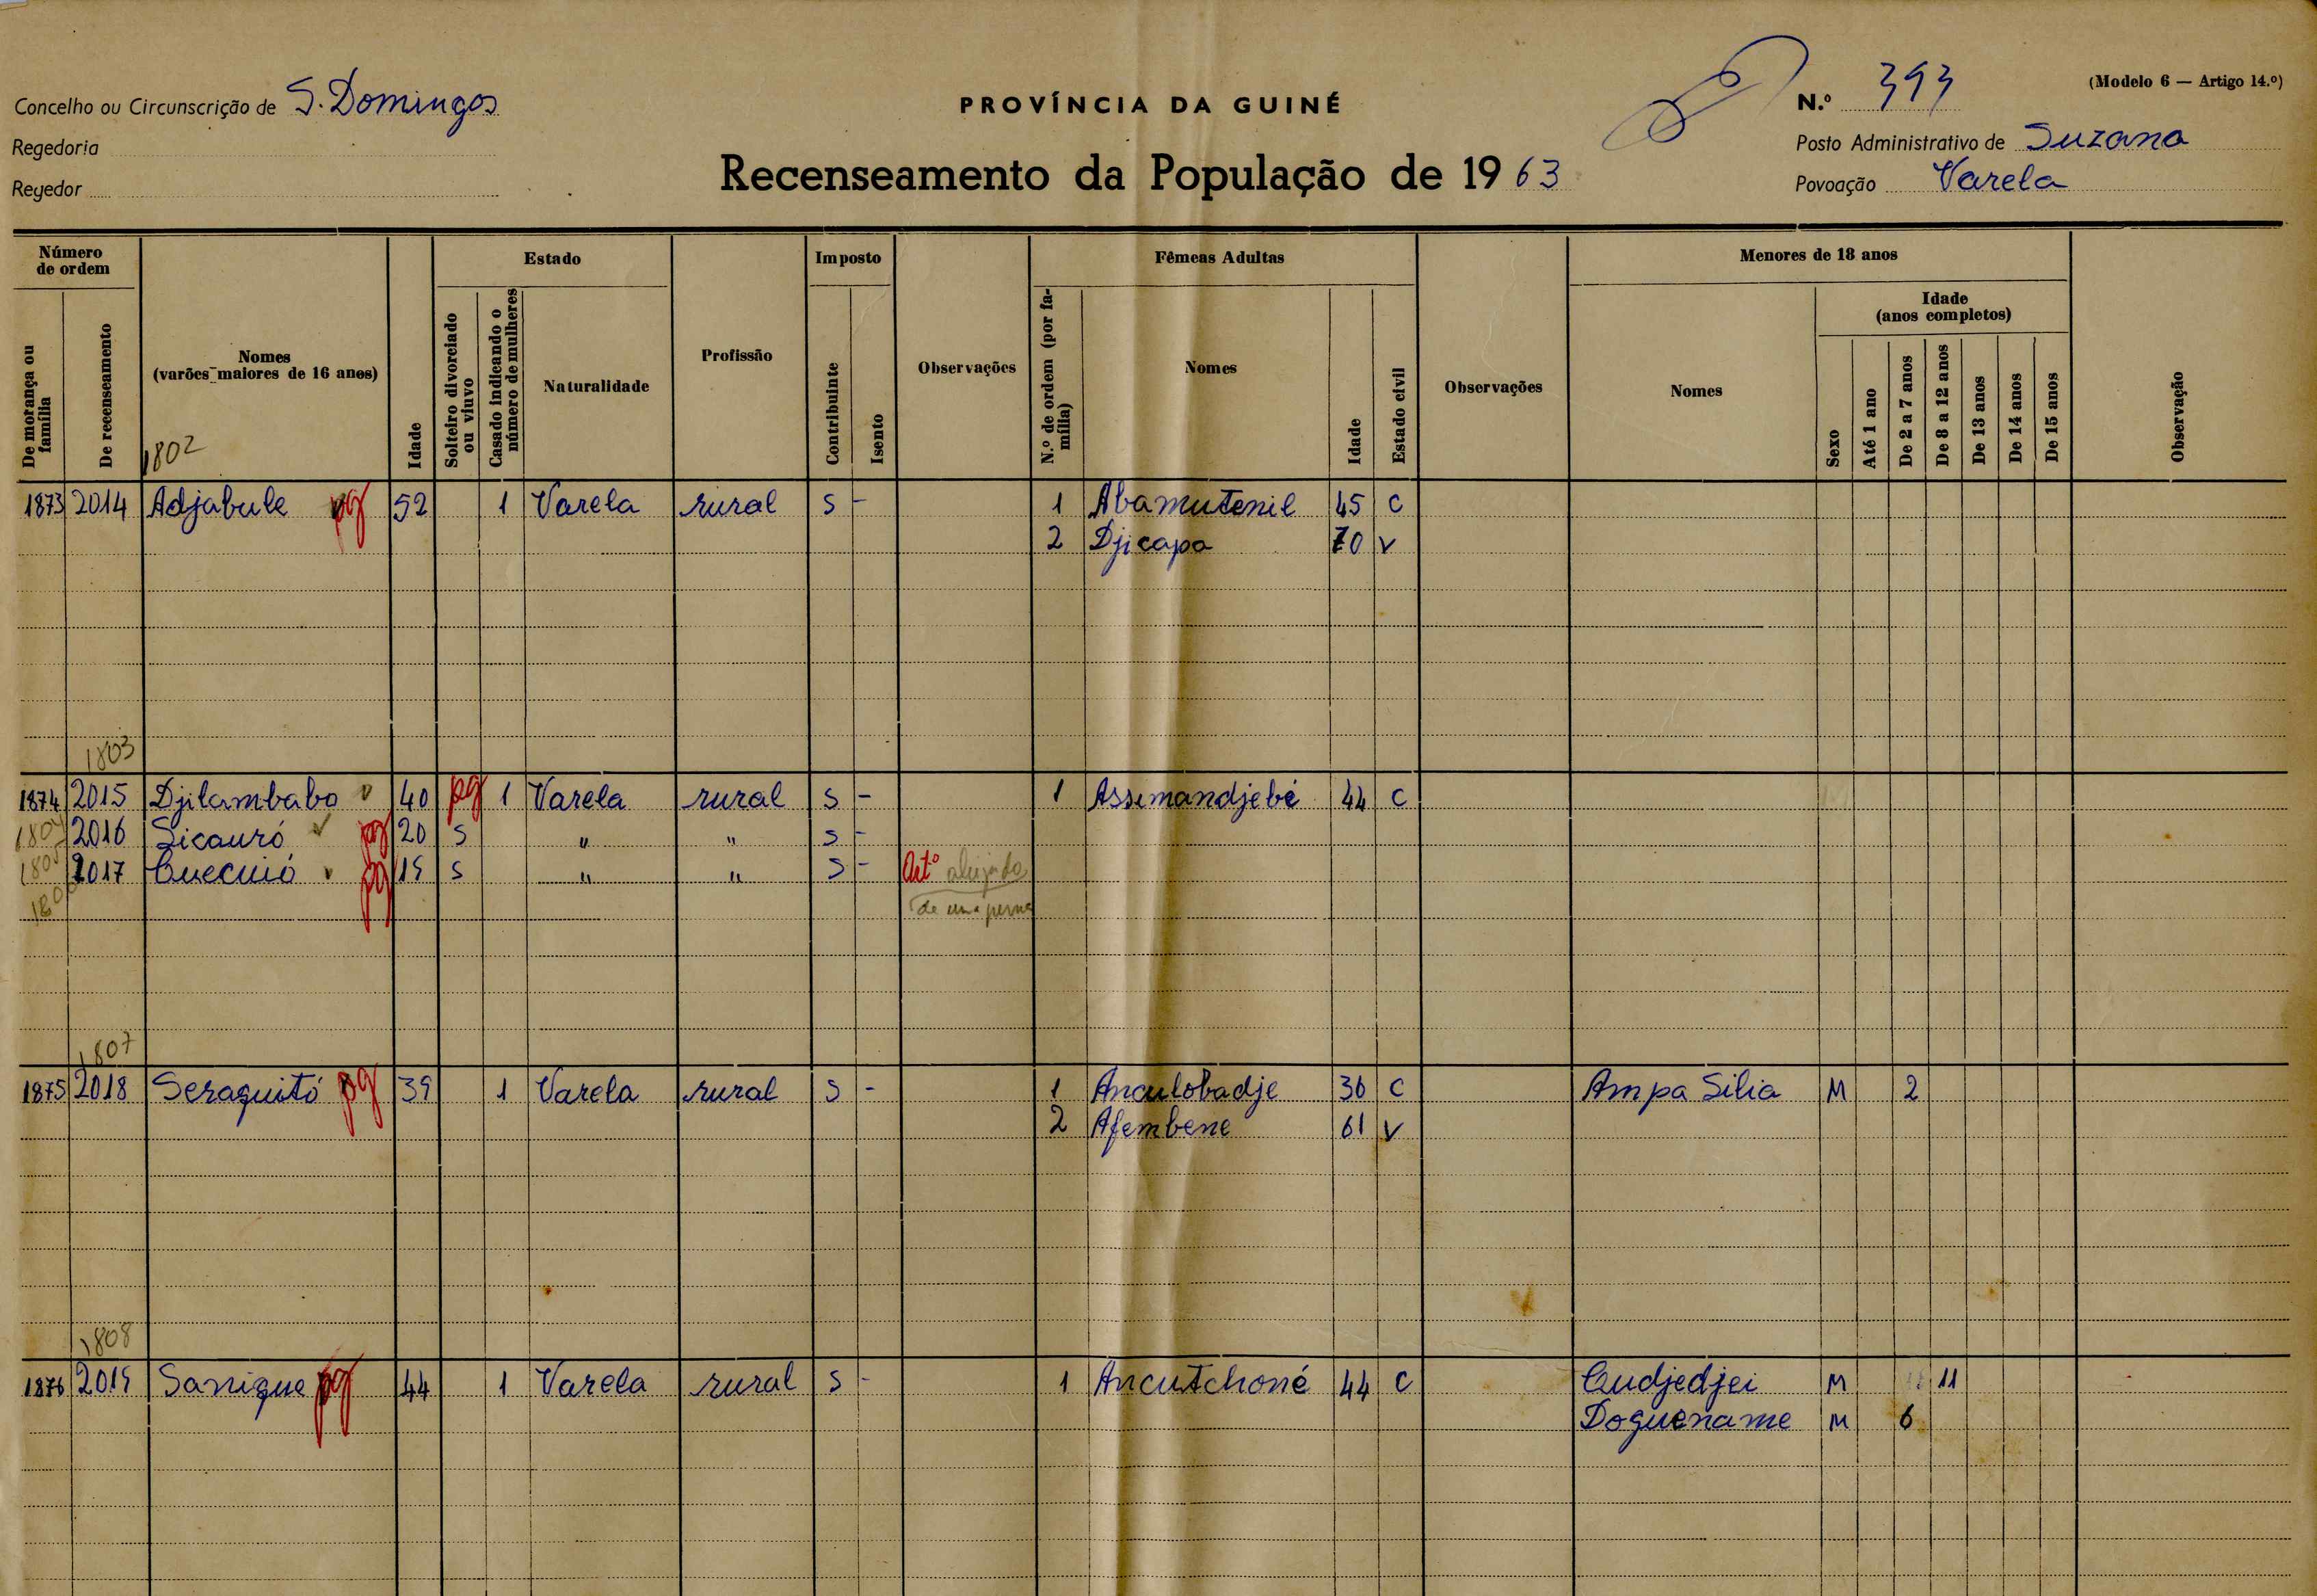 (Modelo 6 — Artigo 14.º)
Concelho ou Circunscrição de S. Domingos
PROVÍNCIA DA GUINÉ
N.º 393
Regedoria
Posto Administrativo de Suzana
Regedor
Recenseamento da População de 1963
Povoação Varela
Número de ordem
De morança ou família
De recenseamento
Nomes
(varões maiores de 16 anos)
Idade
Estado
Solteiro divorciado ou viuvo
Casado indicando o número de mulheres
Naturalidade
Profissão
Imposto
Contribuinte
Isento
Observações
Fêmeas Adultas
N.º de ordem (por família)
Nomes
Idade
Estado civil
Observações
Menores de 18 anos
Nomes
Sexo
Idade
(anos completos)
Até 1 ano
De 2 a 7 anos
De 8 a 12 anos
De 13 anos
De 14 anos
De 15 anos
Observação
1802
1873 2014 Adjabule pg 52 1 Varela rural S - 1 Abamutenil 45 C
2 Djicapa 70 V
1803
1874 2015 Djilambabo v 40 pg 1 Varela rural S - 1 Assimandjebé 44 C
1804 2016 Sicauró v pg 20 S " " S -
1805 2017 Quecuió v pg 19 S " " S - Art.º aleijado
1806 de uma perna
1807
1875 2018 Seraquitó pg 39 1 Varela rural S - 1 Anculobadje 36 C Ampa Silia M 2
2 Afembene 61 V
1808
1876 2019 Sanique pg 44 1 Varela rural S - 1 Ancutchoné 44 C Qudjedjei M 11
Doguename M 6